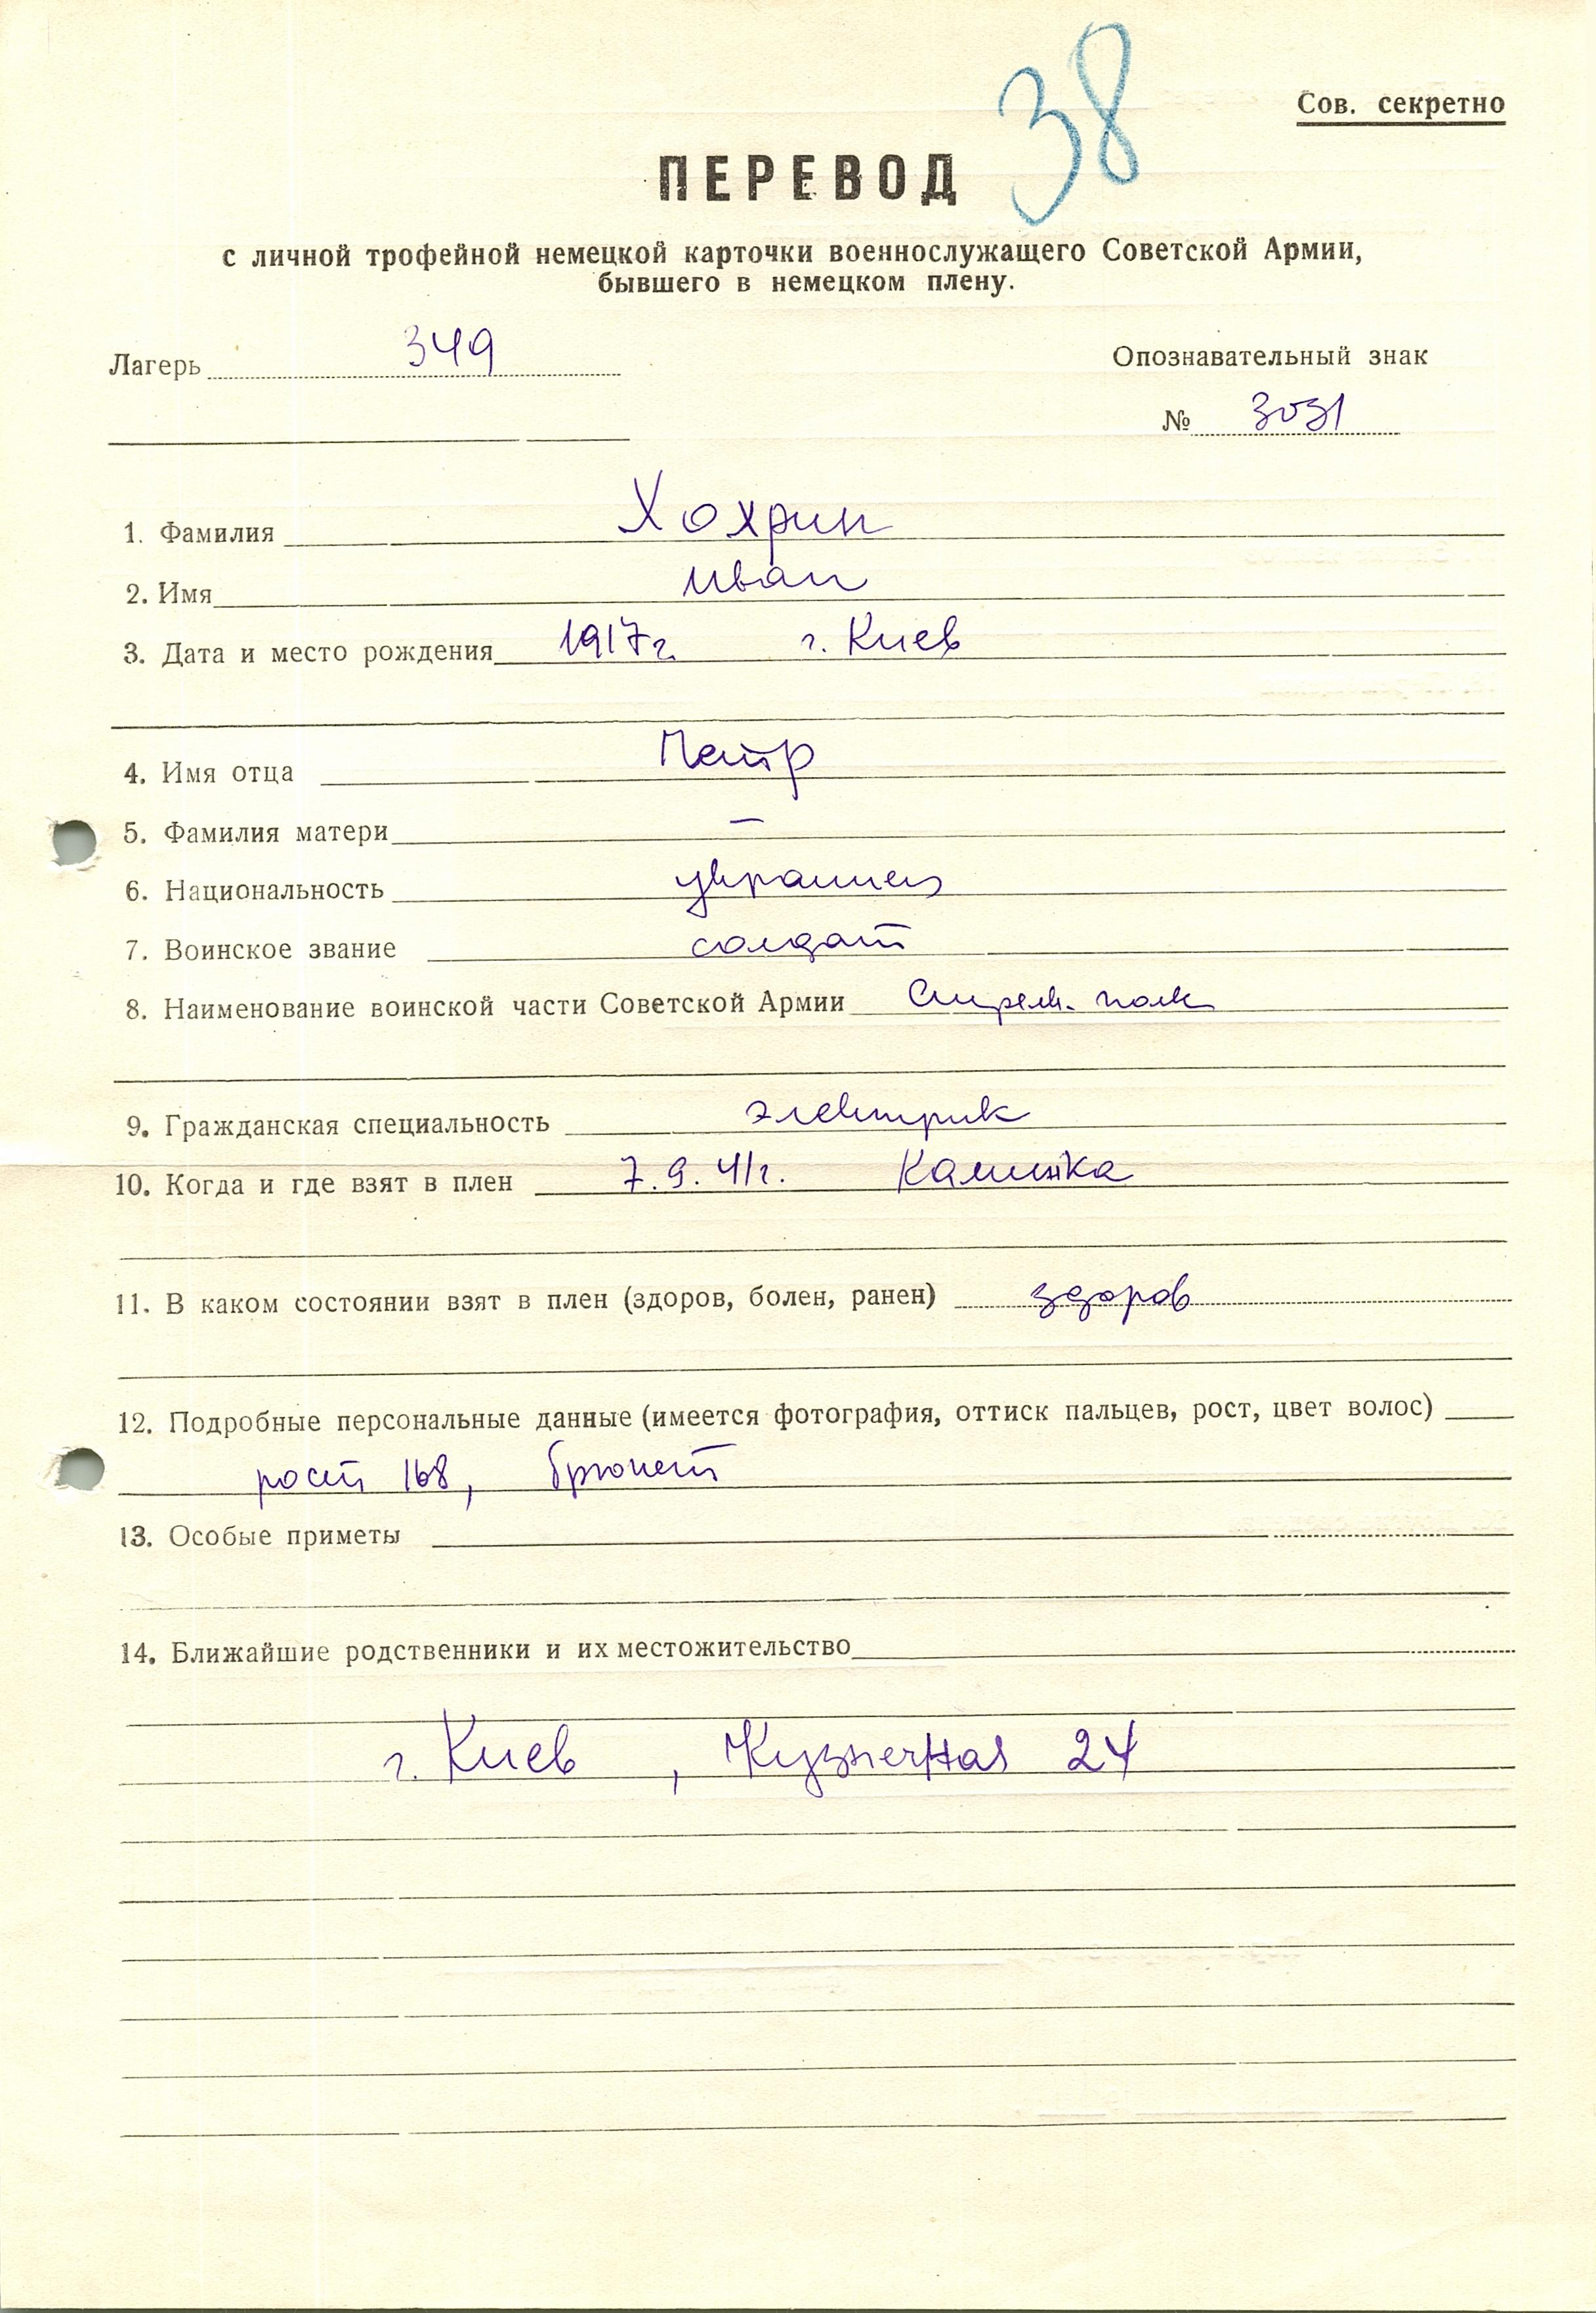 38
Сов. секретно
ПЕРЕВОД
с личной трофейной немецкой карточки военнослужащего Советской Армии,
бывшего в немецком плену.
Лагерь 349
Опознавательный знак
№ 3031
1. Фамилия Хохрин
2. Имя Иван
3. Дата и место рождения 1917г. г. Киев
4. Имя отца Петр
5. Фамилия матери —
6. Национальность украинец
7. Воинское звание солдат
8. Наименование воинской части Советской Армии Стрелк. полк
9. Гражданская специальность электрик
10. Когда и где взят в плен 7.9.41г. Калинка
11. В каком состоянии взят в плен (здоров, болен, ранен) здоров
12. Подробные персональные данные (имеется фотография, оттиск пальцев, рост, цвет волос)
рост 168, брюнет
13. Особые приметы
14. Ближайшие родственники и их местожительство
г. Киев, Кузнечная 24